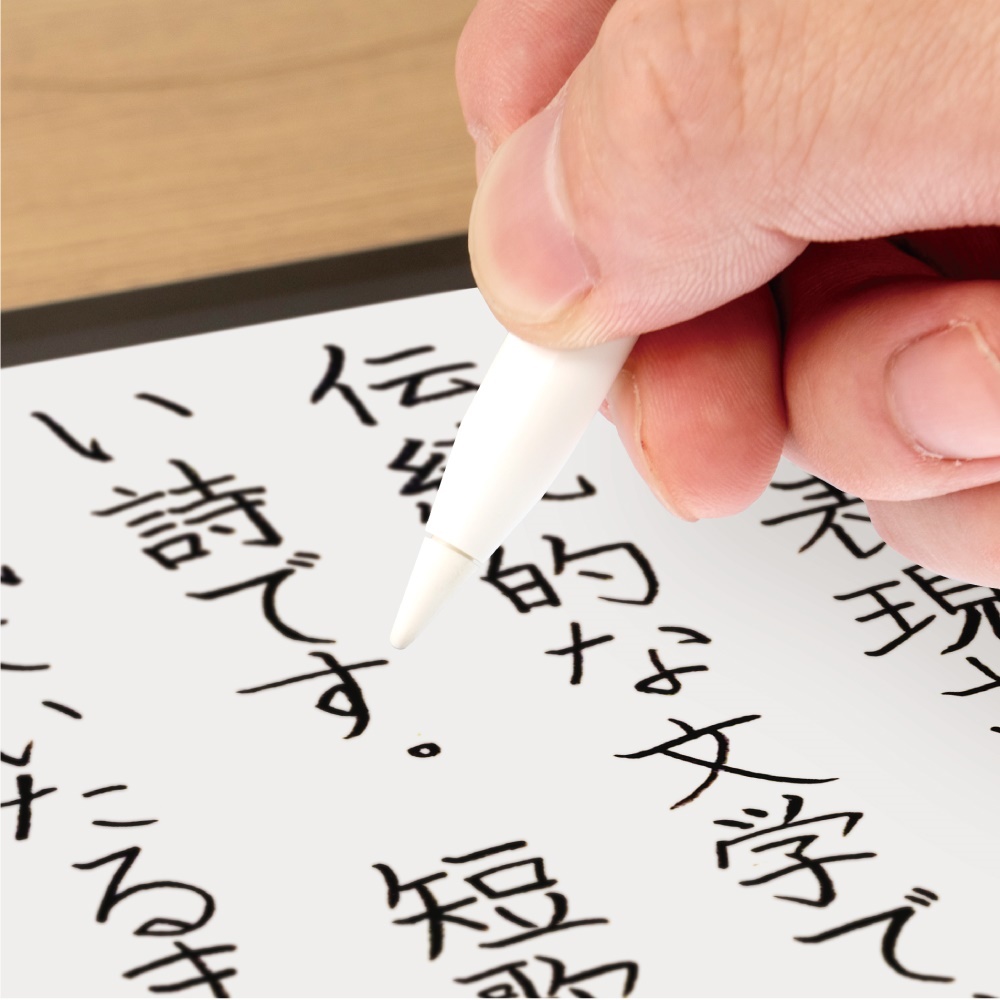 表現
伝統的な文学で
い詩です。短歌
たる